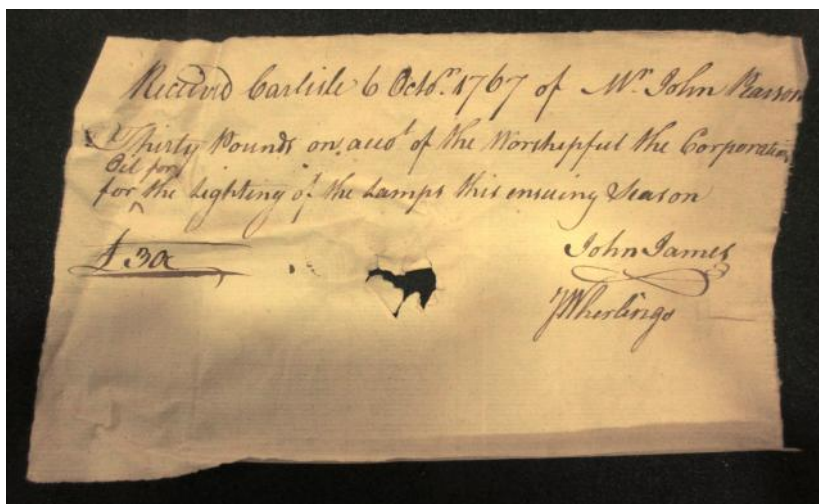 Received Carlisle 6 Octo.r 1767 of Mr. John
Thirty Pounds on acco.t of the Worshepful the Corporation
Oil for
for the Lighting of the Lamps this ensuing Season
£30
John James